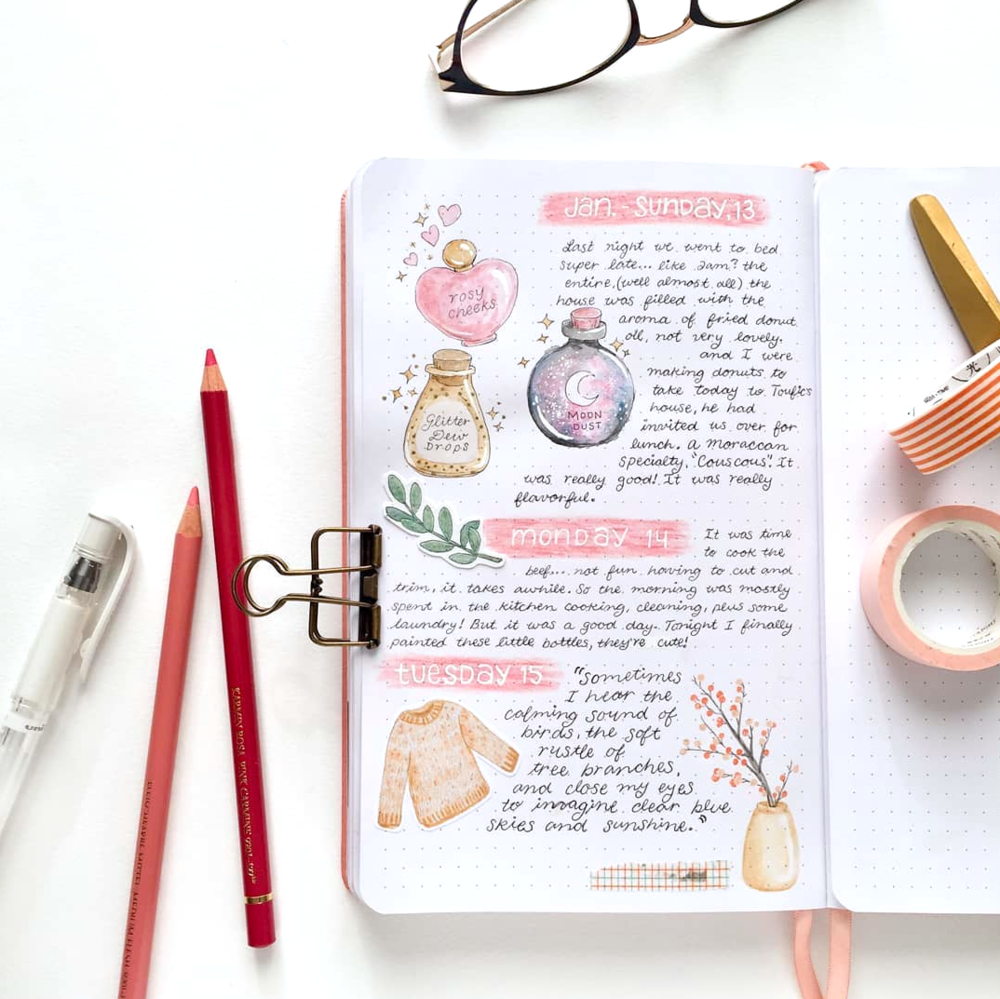 Jan. - Sunday, 13
Last night we went to bed
super late... like 2am? the
entire, (well almost all) the
house was filled with the
aroma of fried donut
oil, not very lovely.
and I were
making donuts to
take today to Toufic's
house, he had
invited us over for
lunch. a moraccan
specialty, "Couscous". It
was really good! It was really
flavorful.
rosy
cheeks
MOON
DUST
Glitter
Dew
Drops
monday 14
It was time
to cook the
beef... not fun having to cut and
trim, it takes awhile. So the morning was mostly
spent in the kitchen cooking, cleaning, plus some
laundry! But it was a good day. Tonight I finally
painted these little bottles, they're cute!
tuesday 15
"Sometimes
I hear the
calming sound of
birds, the soft
rustle of
tree branches,
and close my eyes
to imagine clear blue
skies and sunshine."